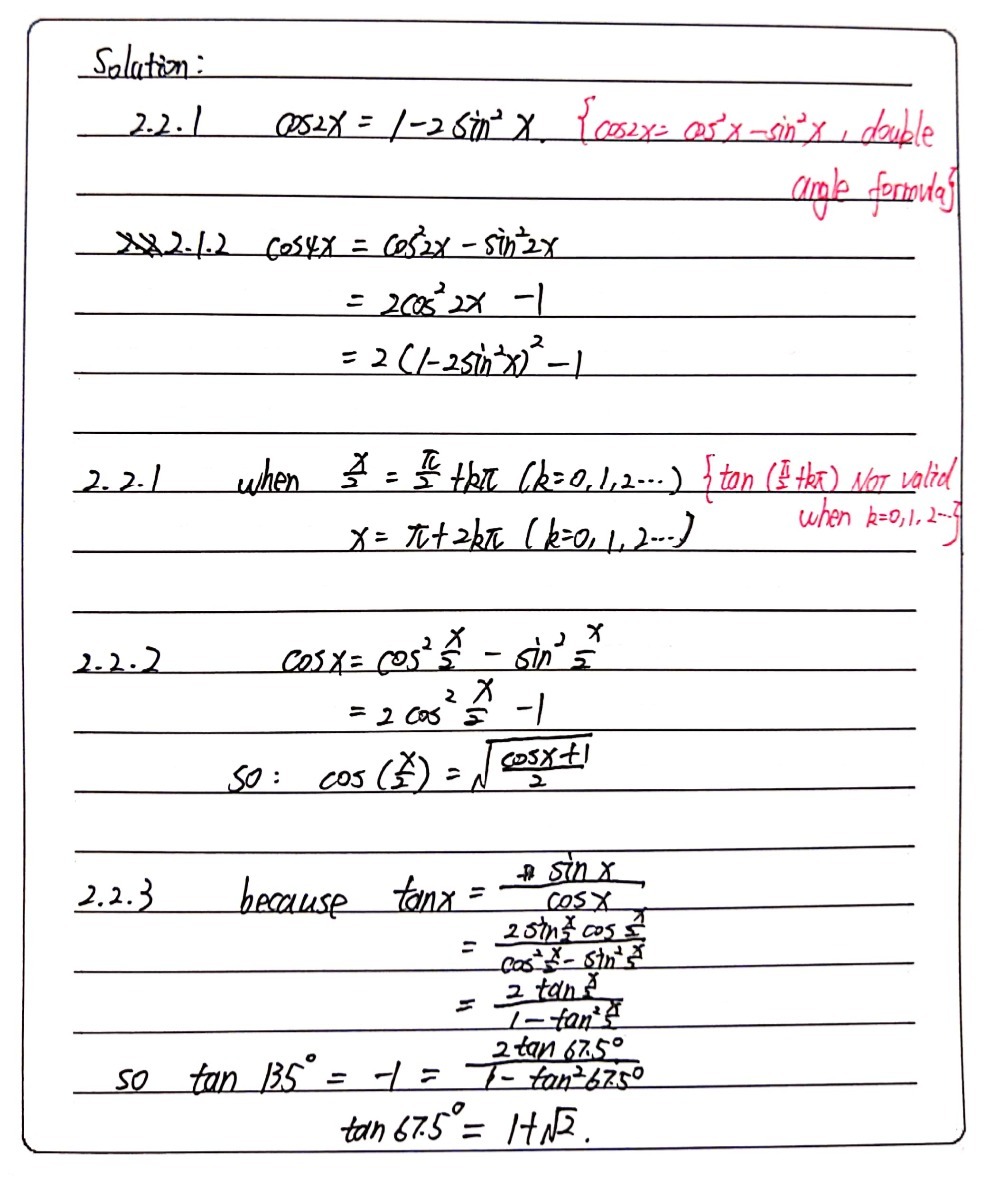 Solution:
2.2.1 cos2x = 1-2 sin² x. {cos2x = cos²x - sin²x, double
angle formula}
2.1.2 cos4x = cos²2x - sin²2x
= 2cos² 2x - 1
= 2 (1-2sin²x)² - 1
2.2.1 when x/2 = π/2 + kπ (k=0,1,2...) {tan (π/2 + kπ) NOT valid
when k=0,1,2...}
x = π + 2kπ (k=0, 1, 2...)
2.2.2 cosx = cos² x/2 - sin² x/2
= 2 cos² x/2 - 1
so: cos (x/2) = √((cosx+1)/2)
2.2.3 because tanx = sin x / cos x
= (2 sin x/2 cos x/2) / (cos² x/2 - sin² x/2)
= (2 tan x/2) / (1 - tan² x/2)
so tan 135° = -1 = (2 tan 67.5°) / (1 - tan² 67.5°)
tan 67.5° = 1+√2.